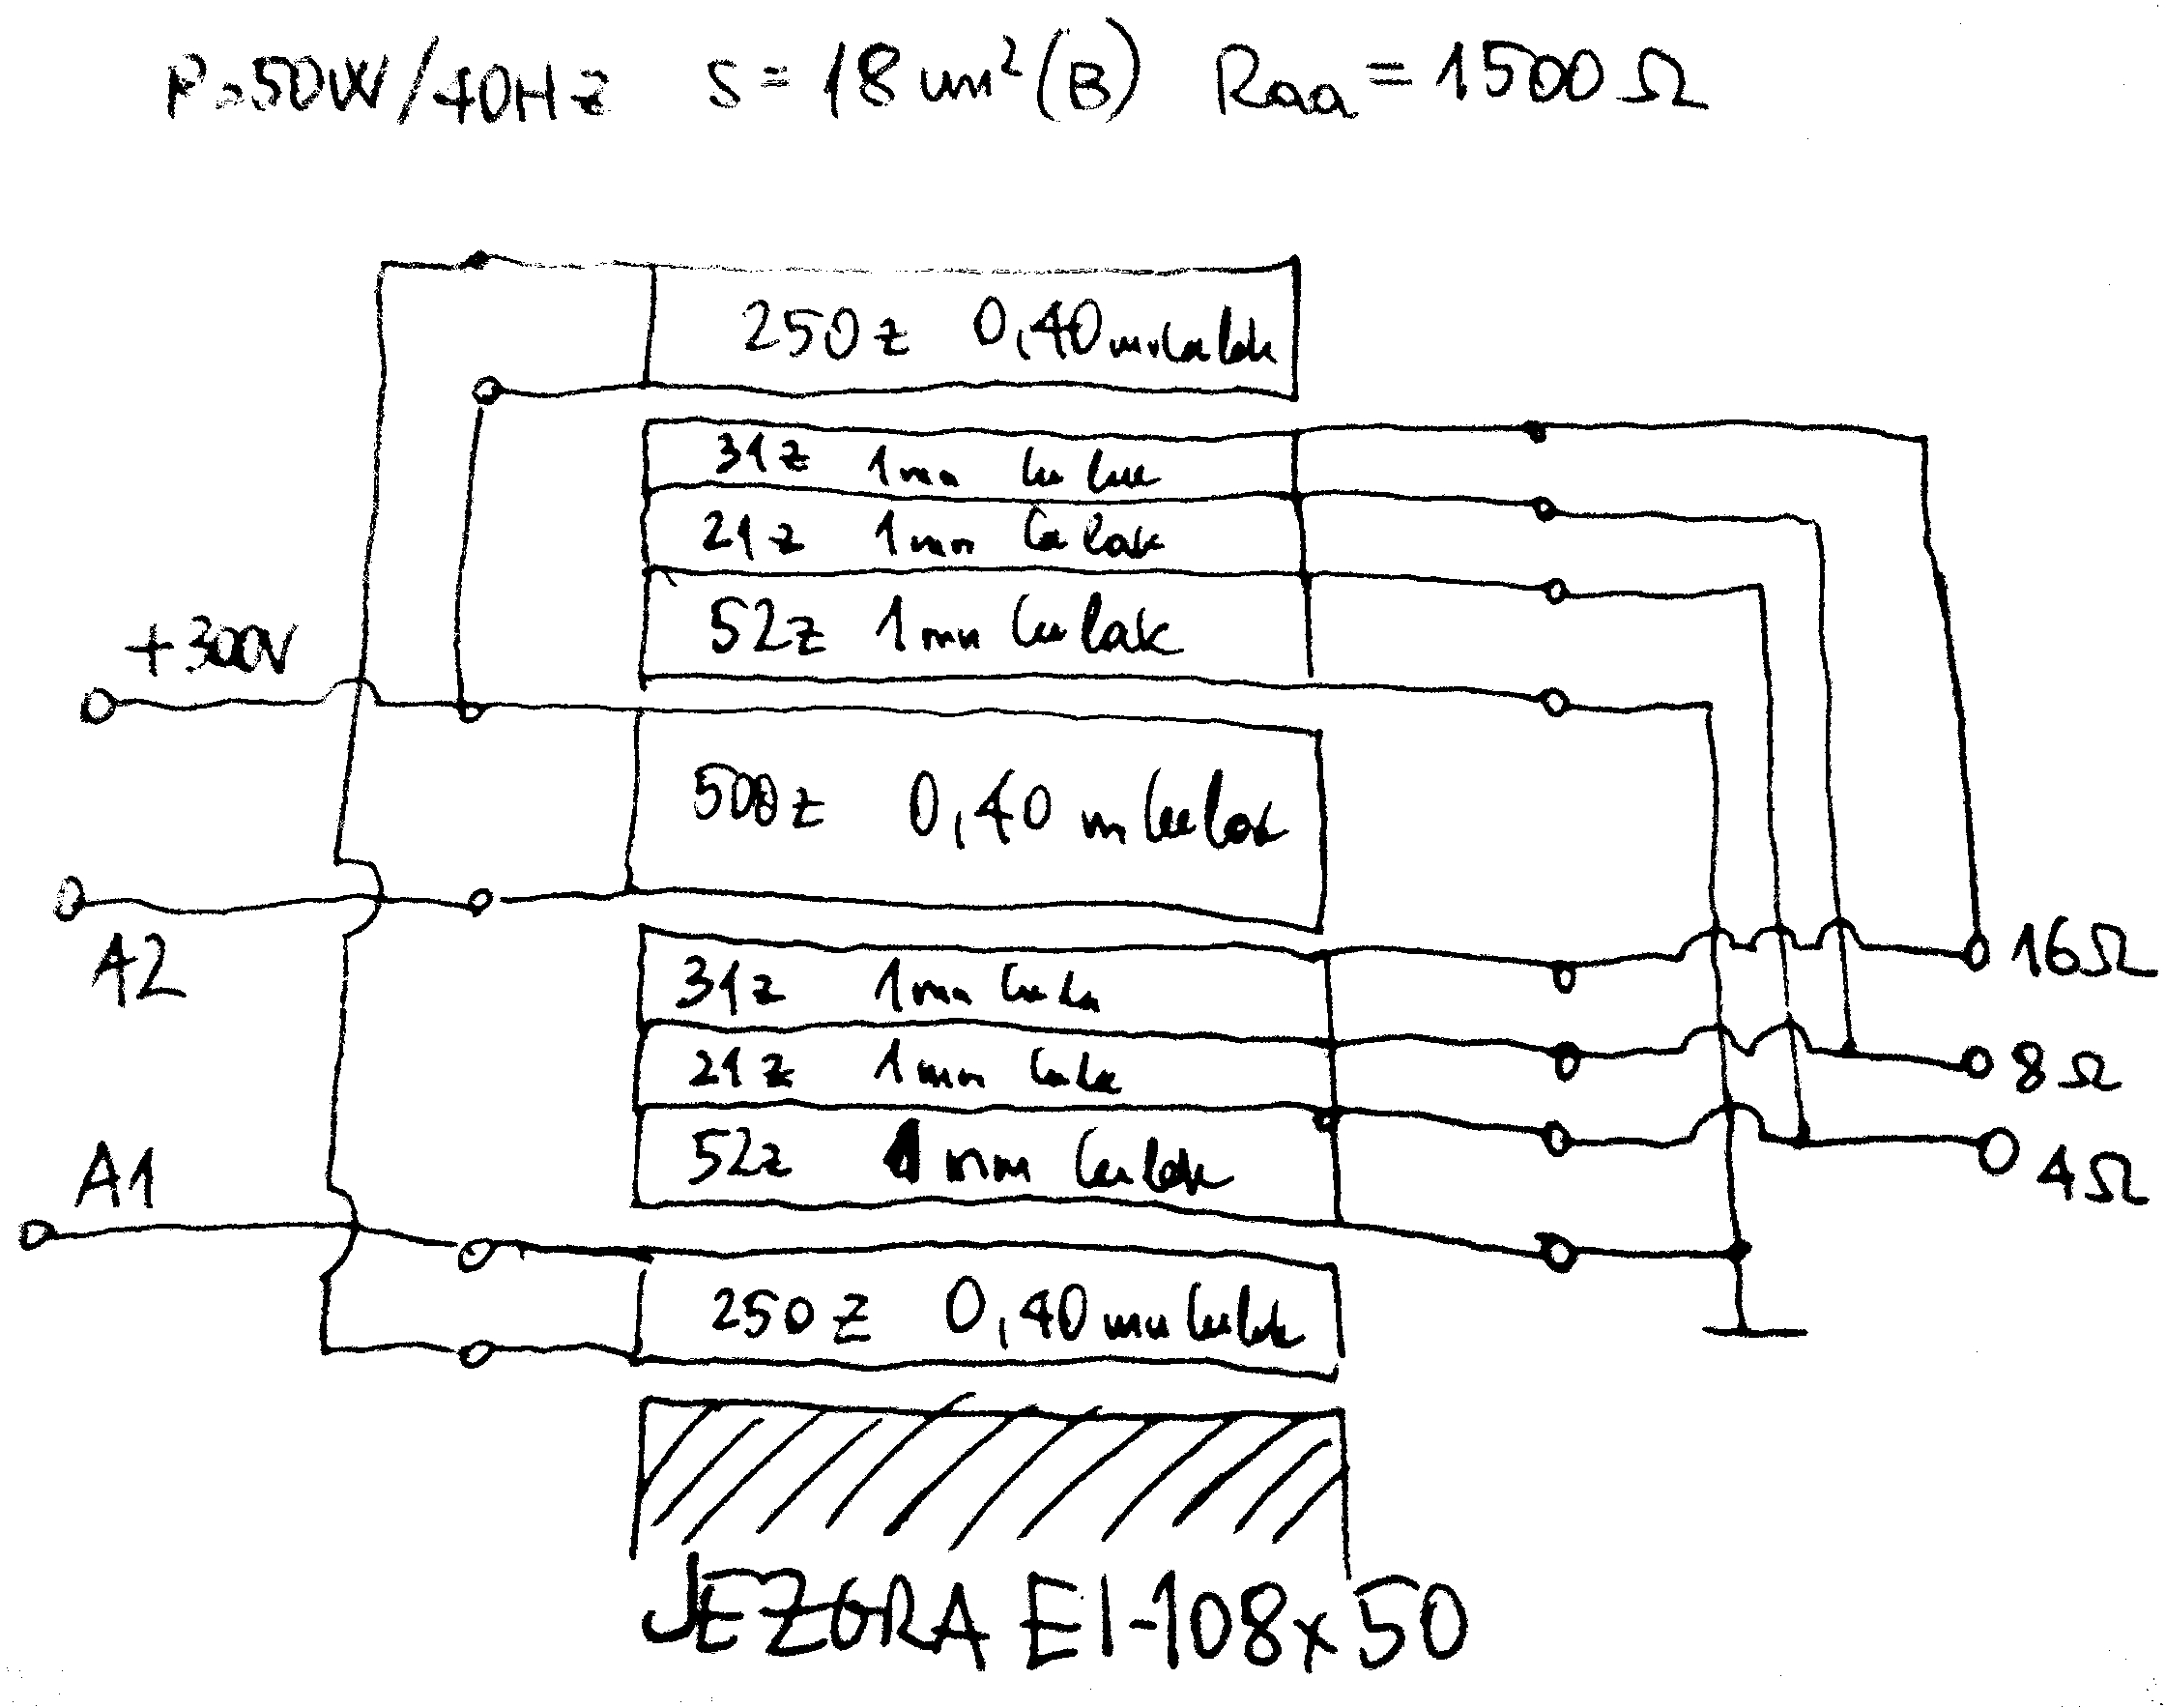 P=50W/40Hz S=18cm²(B) Raa=1500Ω
250z 0,40mm Cu lak
31z 1mm Cu lak
21z 1mm Cu lak
52z 1mm Cu lak
+300V
500z 0,40 m Cu lak
A2
31z 1mm Cu La
16Ω
21z 1mm Cu La
8Ω
52z 1mm Cu lak
4Ω
A1
250z 0,40mm Cu lak
JEZGRA EI-108x50